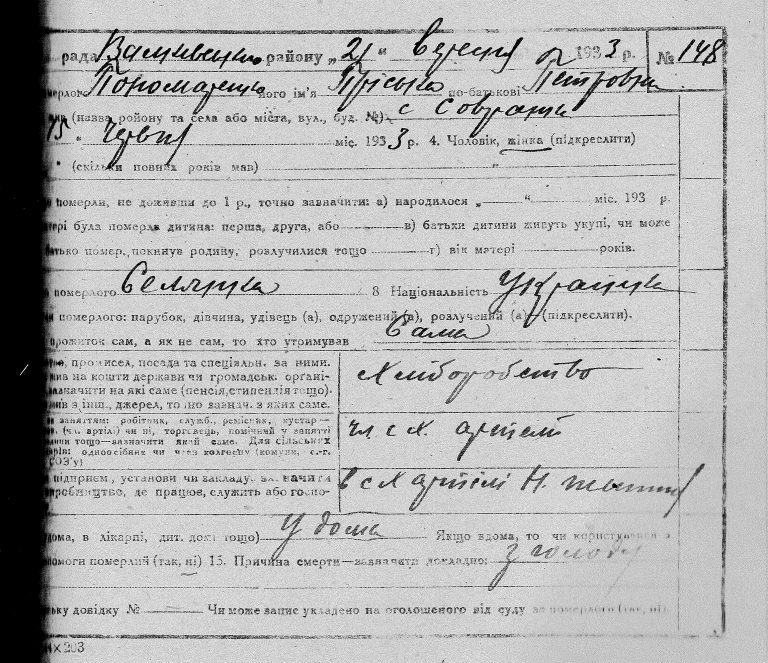 рада Валківсько району „21 “ вересня 1933 р. № 148
мерлого Пономаренко його ім'я Пріська по-батькові Петровна
(назва району та села або міста, вул., буд. №) с
15 “ червня міс. 1933 р. 4. Чоловік, жінка (підкреслити)
“ (скільки повних років мав) "
померли, не доживши до 1 р., точно зазначити: а) народилося „ “ міс. 193 р.
тері була померла дитина: перша, друга, або в) батьки дитини живуть укупі, чи може
тько помер, покинув родину, розлучилися тощо г) вік матері років.
померлого Селянка 8 Національність Українка
померлого: парубок, дівчина, удівець (а), одружений (а), розлучений (а)—(підкреслити).
прожиток сам, а як не сам, то хто утримував Сама
промисел, посада та спеціальн. за ними.
жив на кошти держави чи громадськ. органі-
зазначити на які саме (пенсія, стипендія тощо).
жив з інш., джерел, то що зазнач. з яких саме.
Хліборобство
заняттям: робітник, служб., ремісник, кустар—
(чл. артілі) чи ні, торговець, помічний у занятті
тощо—зазначити який саме. Для сільських
одноосібник чи член колгоспу (комуни, с.-г.
СОЗ'у)
чл. с х. артілі
підприєм., установи чи закладу, зазначити
виробництво, де працює, служить або госпо-
в с х артілі Н.
вдома, в лікарні, дит. домі тощо) у дома Якщо вдома, то чи користувався з
помоги померлий (так, ні) 15. Причина смерти—зазначити докладно: з голоду
ьку довідку № Чи може запис укладено на оголошеного від суду за померлого (так, ні).
203